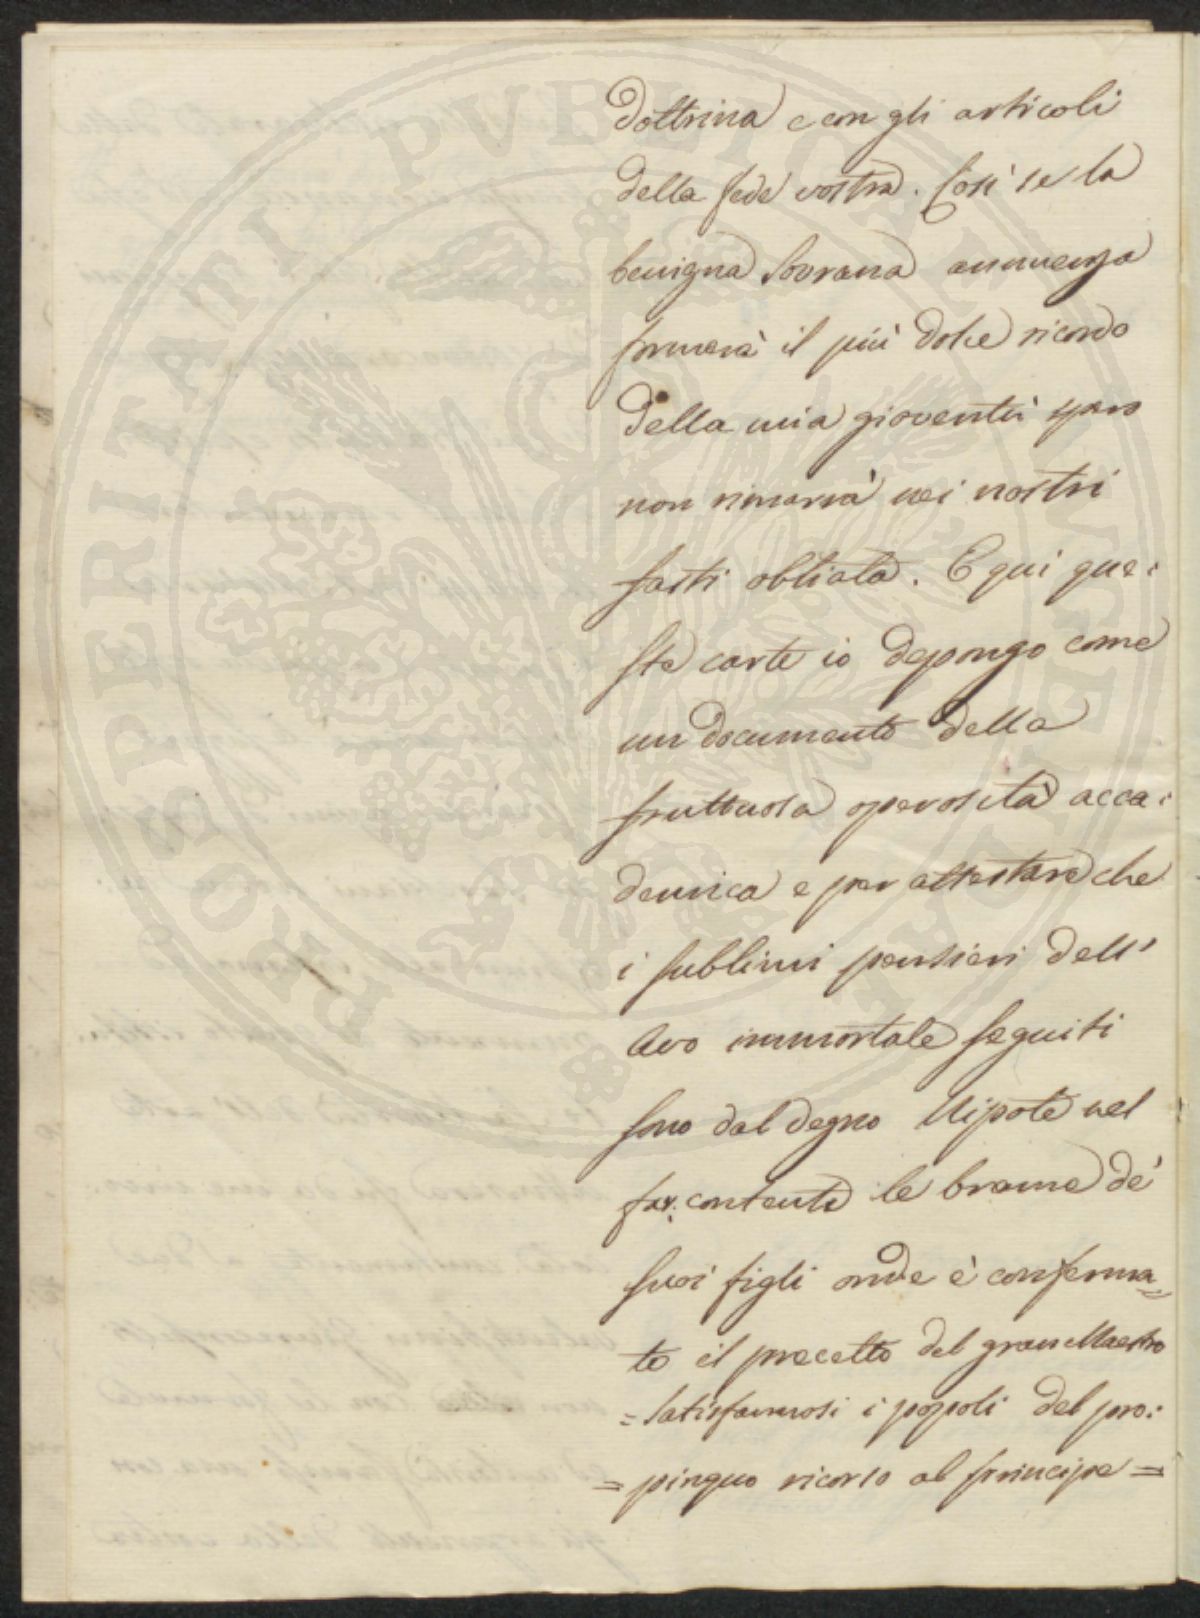 Dottrina e con gli articoli
della fede vostra. Così se la
benigna Sovrana annuenza
formerà il più dolce ricordo
della mia gioventù spero
non rimarrà nei nostri
fasti obliata. E qui que:
ste carte io depongo come
un documento della
fruttuosa operosità acca:
demica e per attestare che
i sublimi pensieri dell'
Avo immortale seguiti
sono dal degno Nipote nel
far contente le brame de'
suoi figli onde è conferma=
to il precetto del gran Maestro
= Satisfannosi i popoli del pro:
= pinquo ricorso al principe =
PROSPERITATI PVBLICAE AVGENDAE